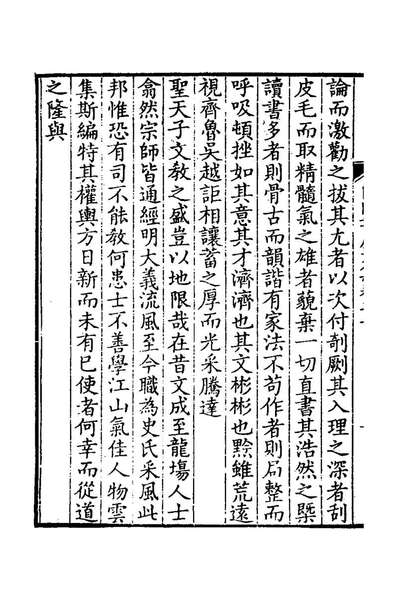 論而激勸之拔其尤者以次付剞劂其入理之深者刮
皮毛而取精髓氣之雄者藐棄一切直書其浩然之槩
讀書多者則骨古而韻諧有家法不苟作者則局整而
呼吸頓挫如其意其才濟濟也其文彬彬也黔雖荒遠
視齊魯吳越詎相讓蓄之厚而光采騰達
聖天子文教之盛豈以地限哉在昔文成至龍塲人士
翕然宗師皆通經明大義流風至今職為史氏采風此
邦惟恐有司不能教何患士不善學江山氣佳人物雲
集斯編特其權輿方日新而未有已使者何幸而從道
之隆與